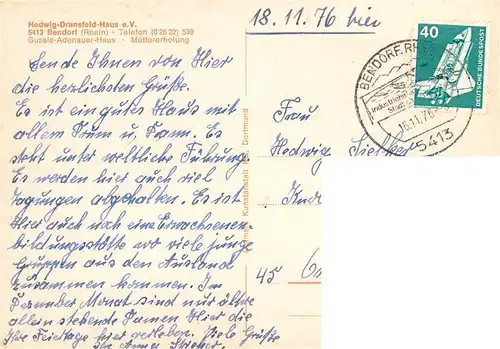 Hedwig-Dransfeld-Haus e.V.
5413 Bendorf (Rhein) - Telefon (0 26 22) 599
Gussie-Adenauer-Haus - Müttererholung
Sende Ihnen von Hier
die herzlichsten Grüße.
Es ist ein gutes Haus mit
allem Drum u, Dram. Es
steht unter weltliche Führung.
Es werden hier auch viel
Tagungen abgehalten. Es ist
Hier auch noch eine Erwachsenen-
bildungsstätte wo viele junge
Gruppen aus den Ausland
zusammen kommen. Im
Dezember Monat sind nur ältere
allein stehende Damen Hier die
Ihre Feiertage hier verleben. Viele Grüße
Ihr Anna
Kunstanstalt Dortmund
18.11.76 hier
BENDORF, RH
18.11.76
5413
40
DEUTSCHE BUNDESPOST
Frau
Hedwig
45